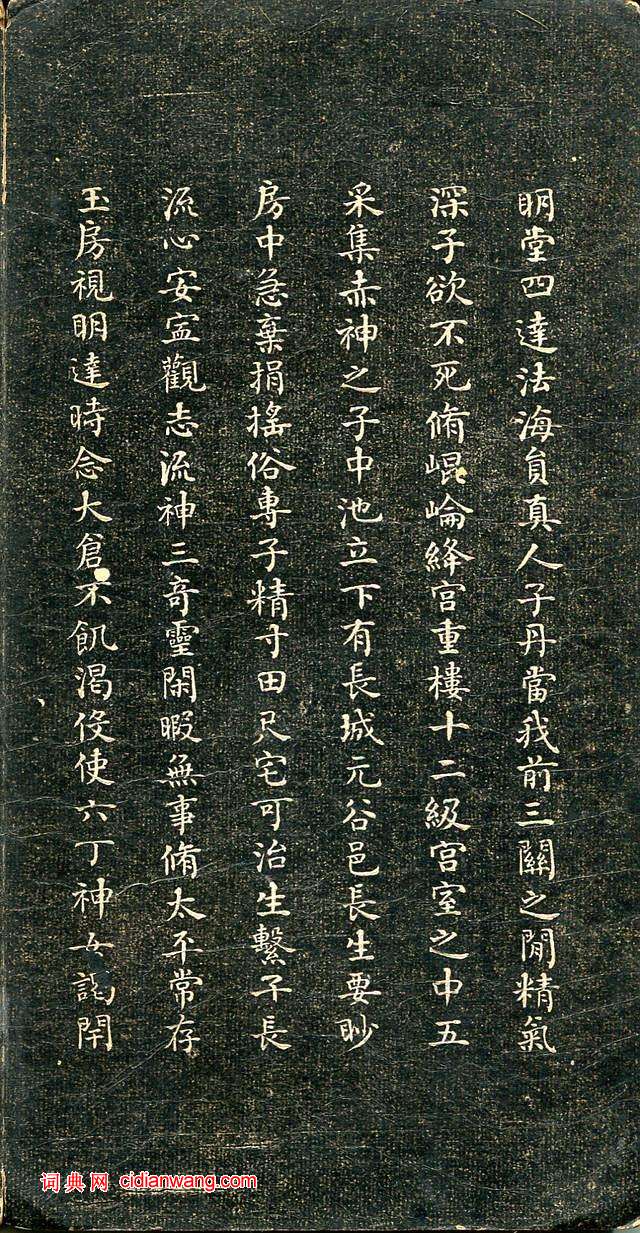 明堂四達法海員真人子丹當我前三關之閒精氣
深子欲不死脩崐崘絳宮重樓十二級宮室之中五
采集赤神之子中池立下有長城元谷邑長生要眇
房中急棄捐搖俗專子精寸田尺宅可治生繫子長
流心安寍觀志流神三奇靈閑暇無事脩太平常存
玉房視明達時念大倉不飢渴伇使六丁神女謁閇
词典网 cidianwang.com